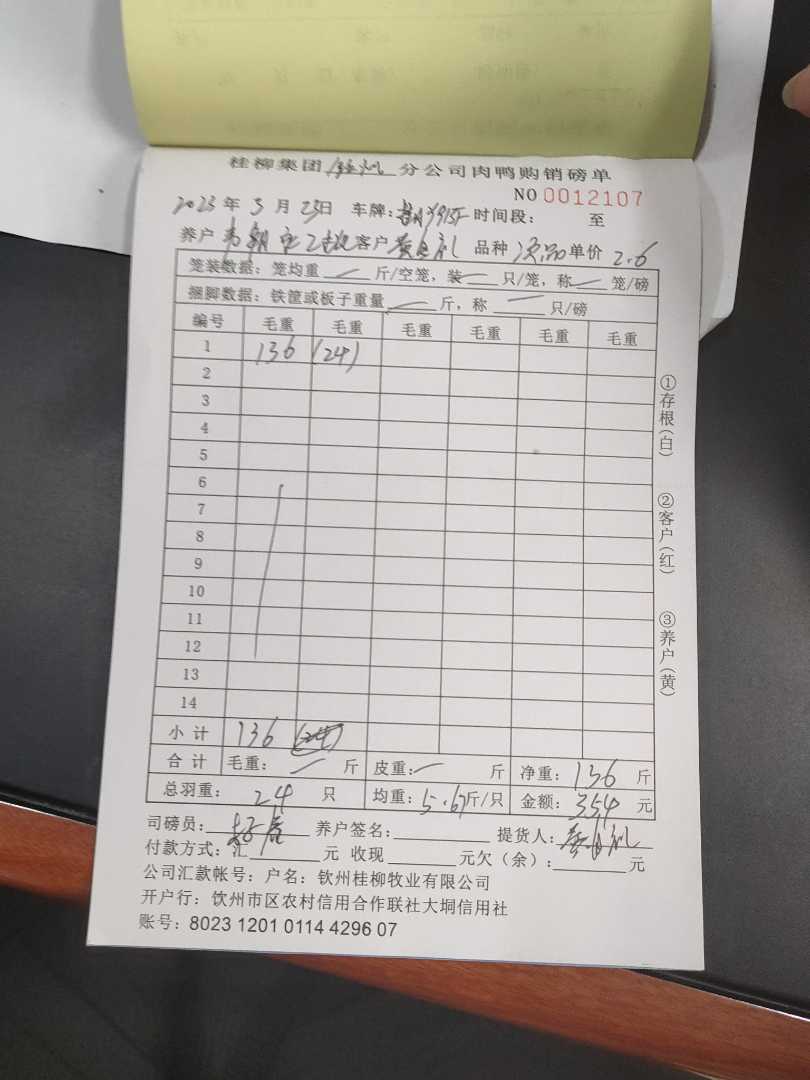 桂柳集团 钦州 分公司肉鸭购销磅单
NO 0012107
2023 年 3 月 23日 车牌: 时间段: 至
养户 客户 品种 次品 单价 2.6
笼装数据: 笼均重 斤/空笼, 装 只/笼, 称 笼/磅
捆脚数据: 铁筐或板子重量 斤, 称 只/磅
编号 毛重 毛重 毛重 毛重 毛重 毛重
1 136 (24)
2
3
4
5
6
7
8
9
10
11
12
13
14
小计 136 (24)
合计 毛重: 斤 皮重: 斤 净重: 136 斤
总羽重: 24 只 均重: 5.67斤/只 金额: 354 元
司磅员: 养户签名: 提货人:
付款方式: 汇 元 收现 元欠(余): 元
公司汇款帐号: 户名: 钦州桂柳牧业有限公司
开户行: 饮州市区农村信用合作联社大垌信用社
账号: 8023 1201 0114 4296 07
①存根(白)
②客户(红)
③养户(黄)